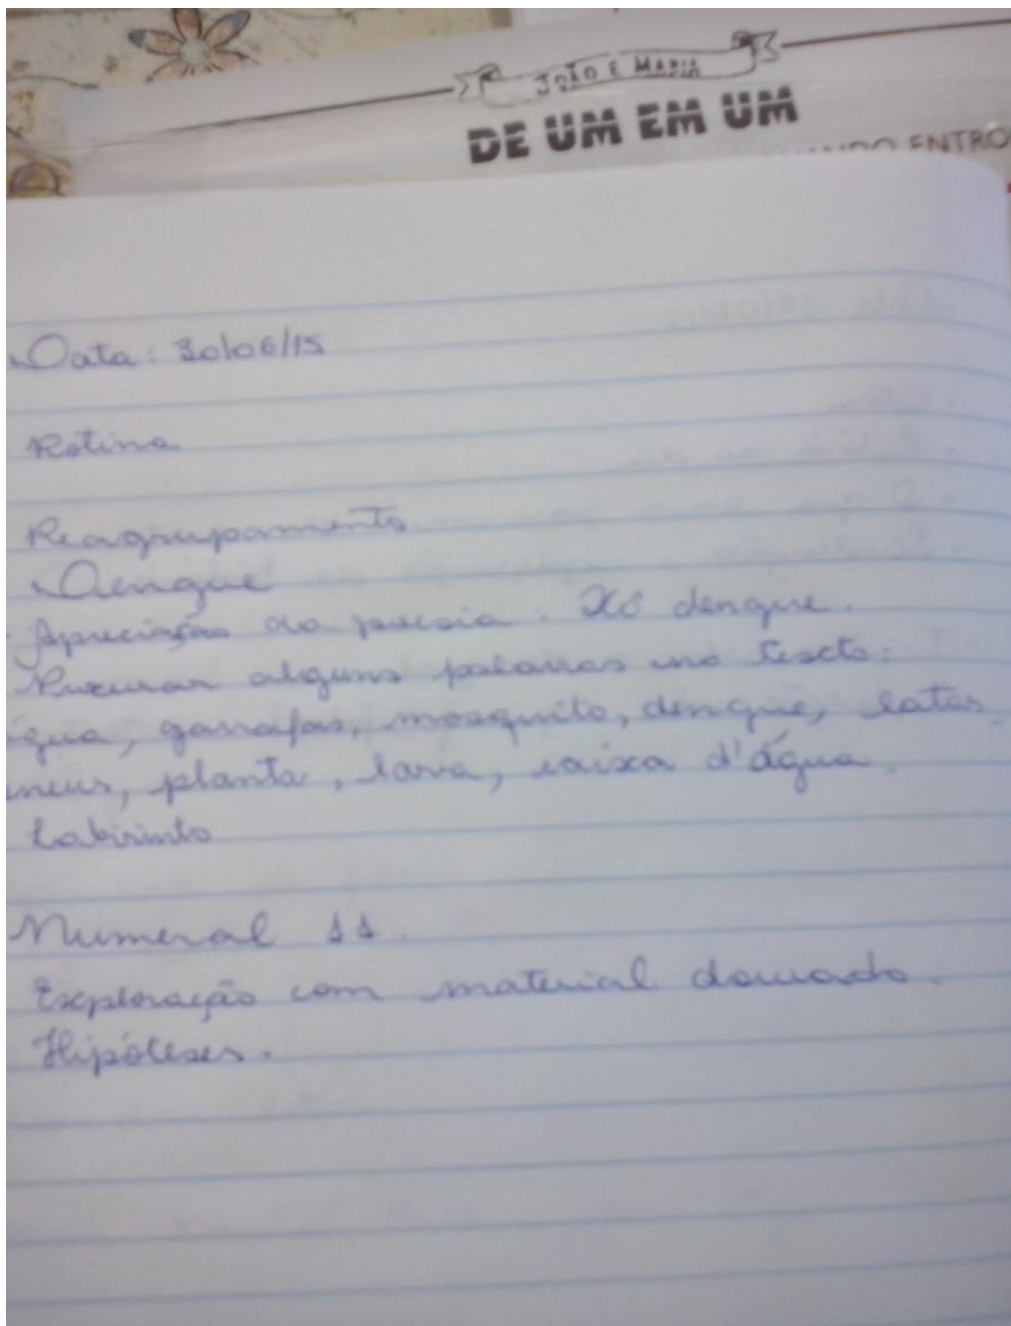 JOÃO E MARIA
DE UM EM UM
ENTRO
Data: 30/06/15
Rotina
Reagrupamento
Dengue
Apreciação da poesia: Xô dengue.
Procurar alguns palavras no texto:
água, garrafas, mosquito, dengue, latas,
pneus, planta, larva, caixa d'água.
Labirinto
Numeral 11.
Exploração com material dourado.
Hipóteses.